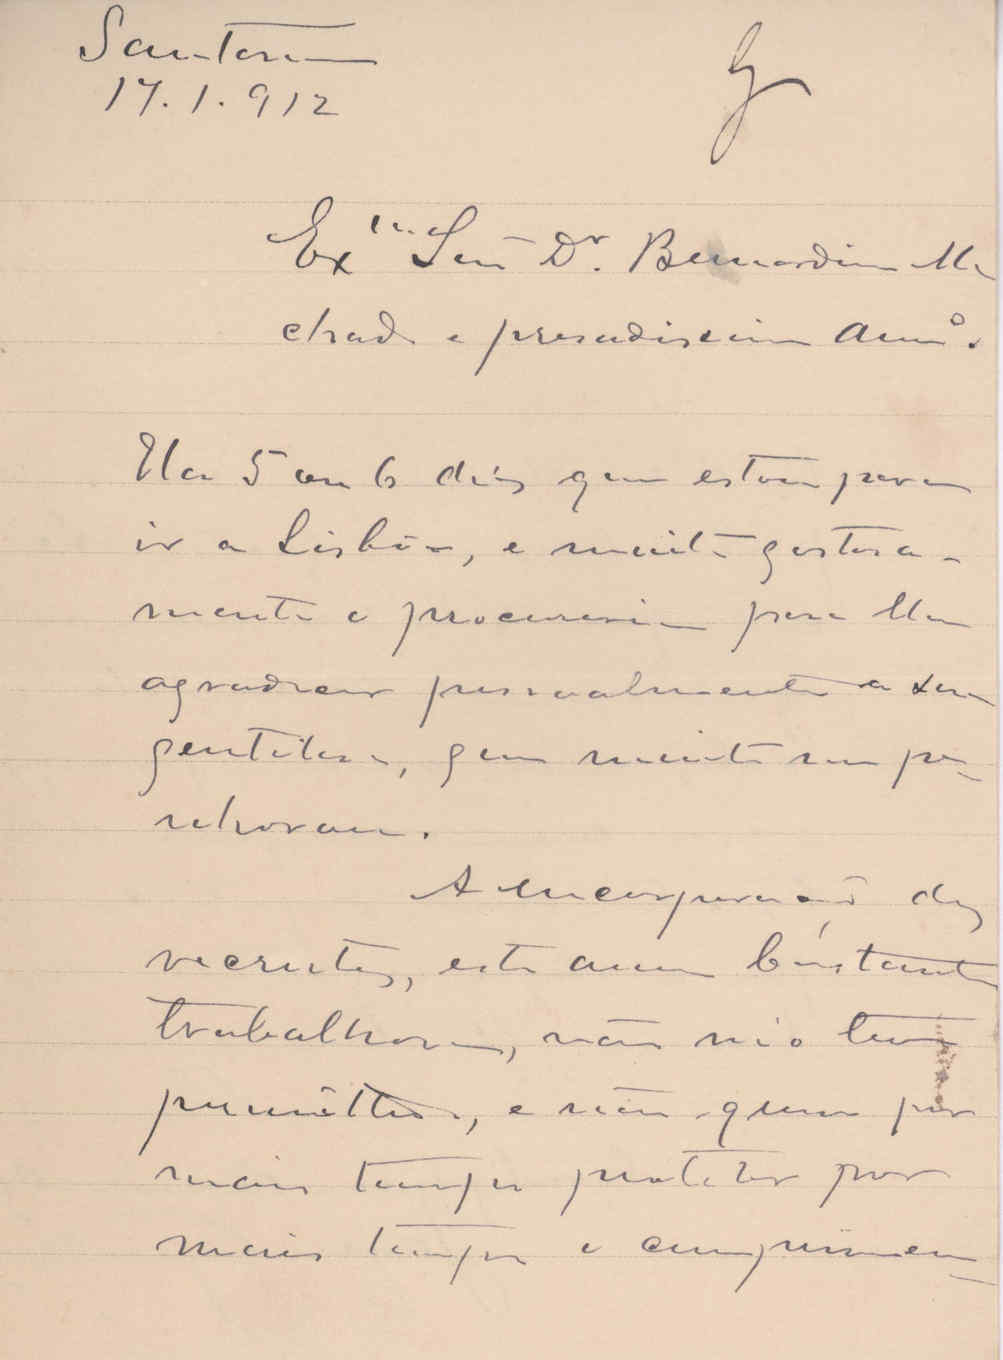 Santarem
17.1.912
Ex.mo Snr. Dr. Bernardino Ma
chado e presadissimo Amº.
Ha 5 ou 6 dias que estou para
ir a Lisbôa, e muito gostosa-
mente o procuraria para lhe
agradecer pessoalmente a sua
gentileza, que muito me pe-
nhorou.
A encorporação dos
recrutas, este anno bastante
trabalhosa, não m'o tem
permittido, e não quero por
mais tempo protelar por
mais tempo o cumprimen-